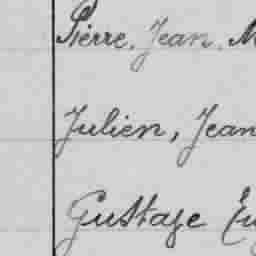 Pierre, Jean, M
Julien, Jean
Gustave Eu